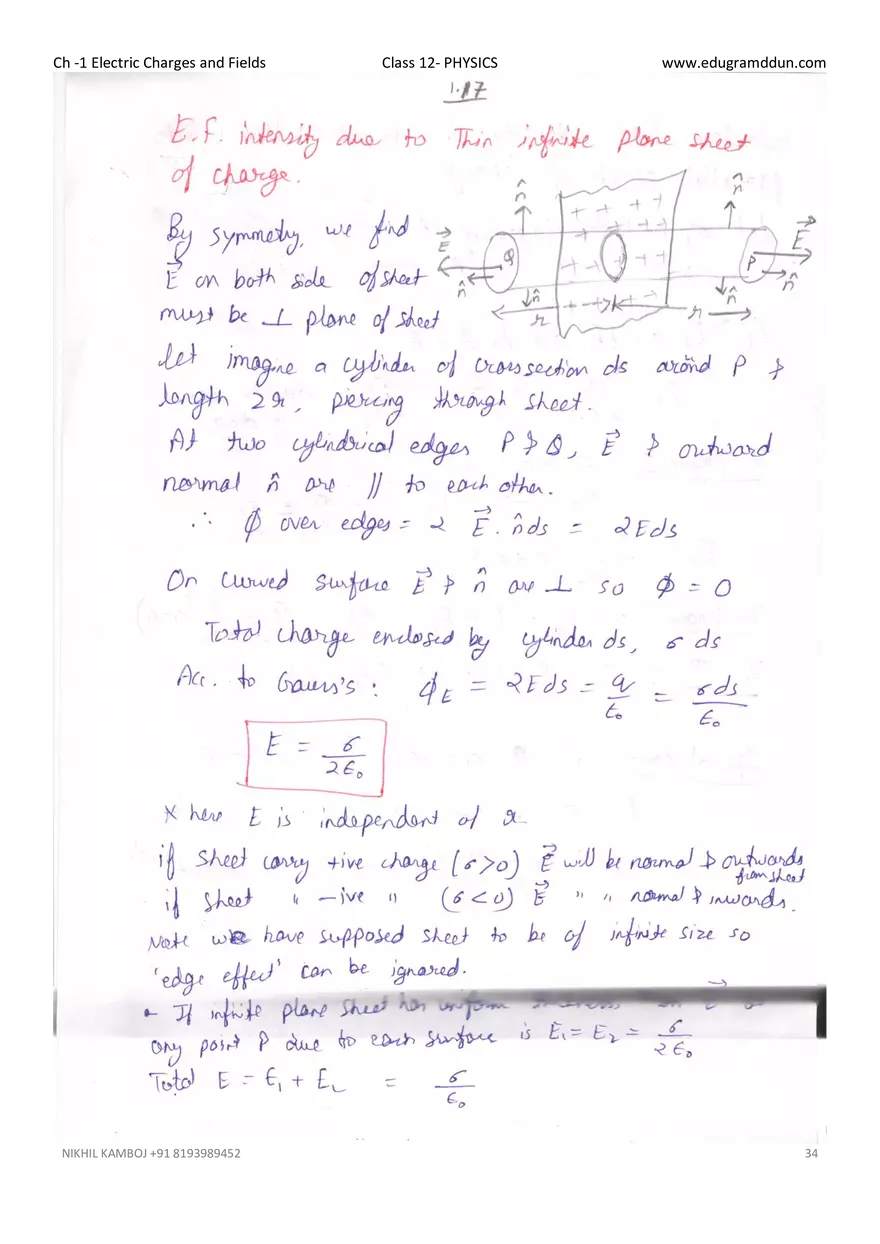 Ch -1 Electric Charges and Fields Class 12- PHYSICS www.edugramddun.com
1.17
E.F. intensity due to Thin infinite plane sheet
of charge.
n̂ + + + + n̂
By symmetry, we find E⃗ Q + + + + P E⃗
E⃗ on both side of sheet n̂ n̂ n̂ n̂
must be ⊥ plane of sheet r r
let imagine a cylinder of crosssection ds around P &
length 2r, piercing through sheet.
At two cylindrical edges P & Q, E⃗ & outward
normal n̂ are || to each other.
∴ ϕ over edges = 2 E⃗ . n̂ ds = 2Eds
On curved surface E⃗ & n̂ are ⊥ so ϕ = 0
Total charge enclosed by cylinder ds, σ ds
Acc. to Gauss's : ϕE = 2Eds = q/ϵ₀ = σds/ϵ₀
E = σ/2ϵ₀
* here E is independent of r
if sheet carry +ive charge (σ>0) E⃗ will be normal & outwards
from sheet
if sheet " -ive " (σ<0) E⃗ " " normal & inwards.
Note we have supposed sheet to be of infinite size so
'edge effect' can be ignored.
- If infinite plane sheet has uniform
any point P due to each surface is E₁ = E₂ = σ/2ϵ₀
Total E = E₁ + E₂ = σ/ϵ₀
NIKHIL KAMBOJ +91 8193989452 34